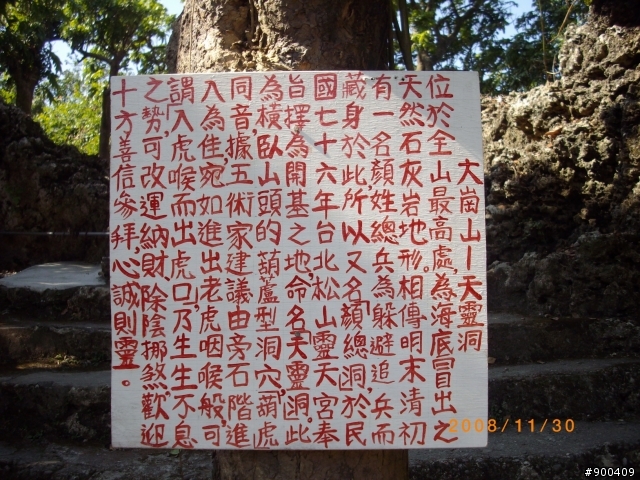 大崗山－天靈洞
位於全山最高處,為海底冒出之
天然石灰岩地形。相傳明末清初
有一名顏姓總兵為躲避追兵而
藏身於此,所以又名顏總洞,於民
國七十六年台北松山靈天宮奉
旨擇為開基之地,命名天靈洞,此
為橫臥山頭的葫蘆型洞穴,葫虎
同音,據五術家建議由旁石階進
入為佳,宛如進出老虎咽喉般,可
謂「入虎喉而出虎口」乃生生不息
之勢,可改運納財,除陰挪煞,歡迎
十方善信參拜,心誠則靈。
2008/11/30
#900409